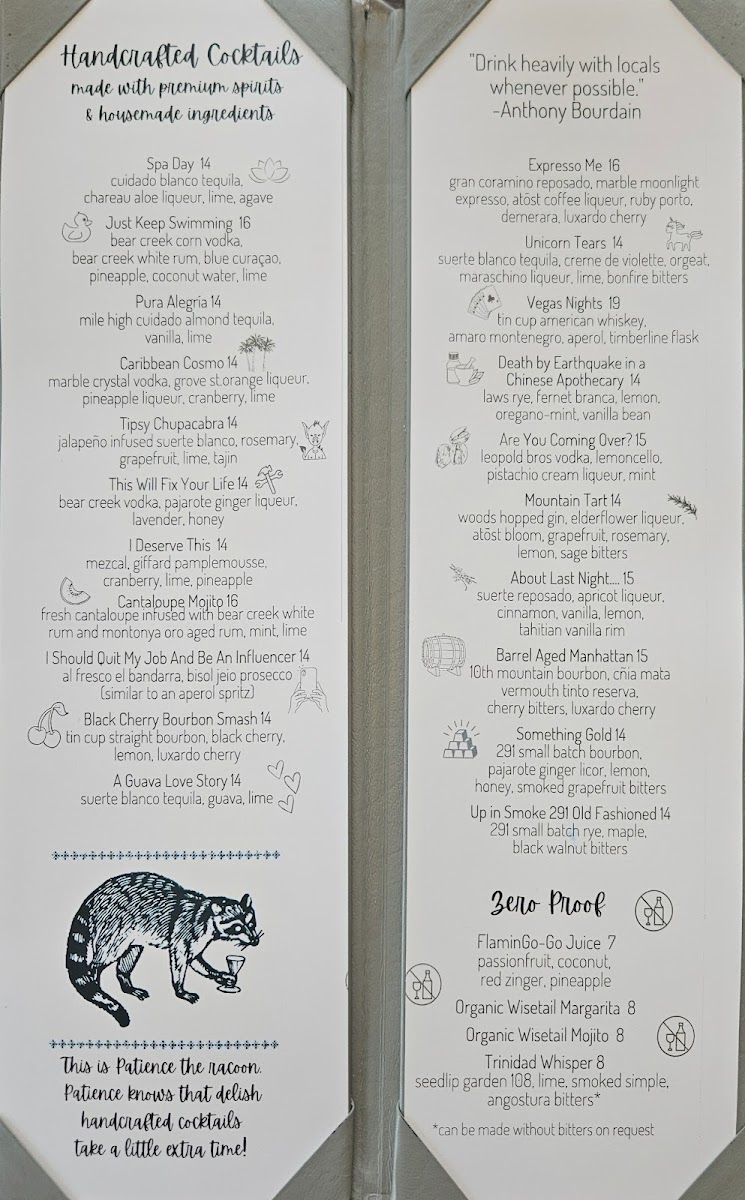 Handcrafted Cocktails
made with premium spirits
& housemade ingredients
Spa Day 14
cuidado blanco tequila,
chareau aloe liqueur, lime, agave
Just Keep Swimming 16
bear creek corn vodka,
bear creek white rum, blue curaçao,
pineapple, coconut water, lime
Pura Alegria 14
mile high cuidado almond tequila,
vanilla, lime
Caribbean Cosmo 14
marble crystal vodka, grove st.orange liqueur,
pineapple liqueur, cranberry, lime
Tipsy Chupacabra 14
jalapeño infused suerte blanco, rosemary,
grapefruit, lime, tajin
This Will Fix Your Life 14
bear creek vodka, pajarote ginger liqueur,
lavender, honey
I Deserve This 14
mezcal, giffard pamplemousse,
cranberry, lime, pineapple
Cantaloupe Mojito 16
fresh cantaloupe infused with bear creek white
rum and montonya oro aged rum, mint, lime
I Should Quit My Job And Be An Influencer 14
al fresco el bandarra, bisol jeio prosecco
(similar to an aperol spritz)
Black Cherry Bourbon Smash 14
tin cup straight bourbon, black cherry,
lemon, luxardo cherry
A Guava Love Story 14
suerte blanco tequila, guava, lime
This is Patience the racoon.
Patience knows that delish
handcrafted cocktails
take a little extra time!
"Drink heavily with locals
whenever possible."
-Anthony Bourdain
Expresso Me 16
gran coramino reposado, marble moonlight
expresso, atōst coffee liqueur, ruby porto,
demerara, luxardo cherry
Unicorn Tears 14
suerte blanco tequila, creme de violette, orgeat,
maraschino liqueur, lime, bonfire bitters
Vegas Nights 19
tin cup american whiskey,
amaro montenegro, aperol, timberline flask
Death by Earthquake in a
Chinese Apothecary 14
laws rye, fernet branca, lemon,
oregano-mint, vanilla bean
Are You Coming Over? 15
leopold bros vodka, lemoncello,
pistachio cream liqueur, mint
Mountain Tart 14
woods hopped gin, elderflower liqueur,
atōst bloom, grapefruit, rosemary,
lemon, sage bitters
About Last Night.... 15
suerte reposado, apricot liqueur,
cinnamon, vanilla, lemon,
tahitian vanilla rim
Barrel Aged Manhattan 15
10th mountain bourbon, cñia mata
vermouth tinto reserva,
cherry bitters, luxardo cherry
Something Gold 14
291 small batch bourbon,
pajarote ginger licor, lemon,
honey, smoked grapefruit bitters
Up in Smoke 291 Old Fashioned 14
291 small batch rye, maple,
black walnut bitters
Zero Proof
FlaminGo-Go Juice 7
passionfruit, coconut,
red zinger, pineapple
Organic Wisetail Margarita 8
Organic Wisetail Mojito 8
Trinidad Whisper 8
seedlip garden 108, lime, smoked simple,
angostura bitters*
*can be made without bitters on request